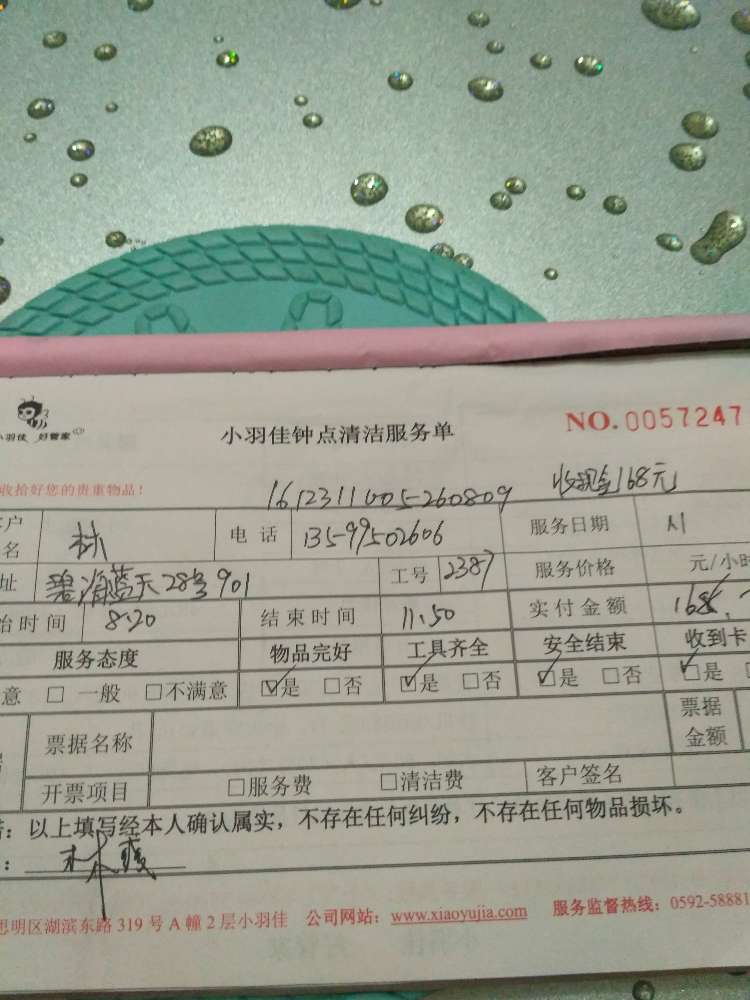 小羽佳 好管家
小羽佳钟点清洁服务单
NO. 0057247
收拾好您的贵重物品!
1612311005-260809 收现金168元
客户名 林 电话 13599502606 服务日期
址 碧海蓝天28号901 工号 2387 服务价格 元/小时
始时间 8:20 结束时间 11:50 实付金额 168
服务态度 物品完好 工具齐全 安全结束 收到卡
意 □一般 □不满意 ☑是 □否 ☑是 □否 ☑是 □否 ☑是
票据名称 票据金额
开票项目 □服务费 □清洁费 客户签名
：以上填写经本人确认属实，不存在任何纠纷，不存在任何物品损坏。
：林
思明区湖滨东路319号A幢2层小羽佳 公司网站：www.xiaoyujia.com 服务监督热线：0592-58881